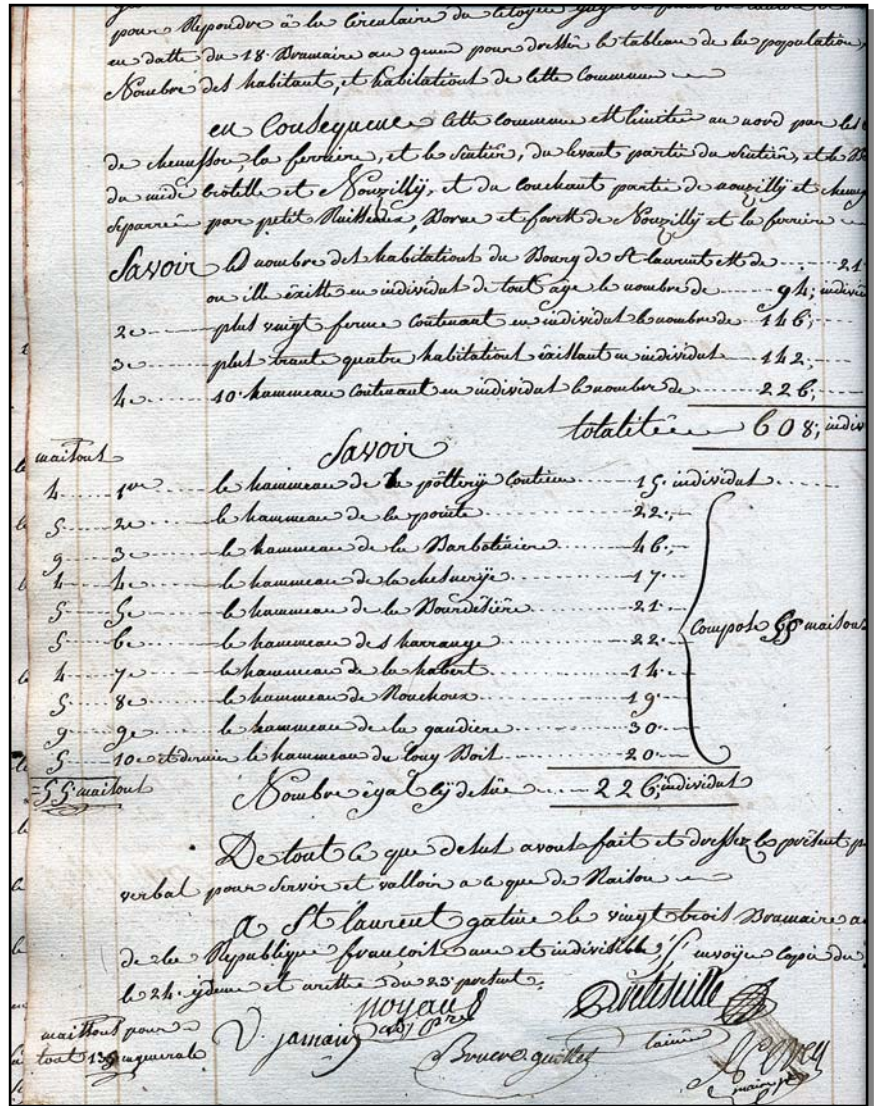 pour Repondre à la Circulaire du Citoyen
en datte du 18. Bramaire au quen pour dresser le tableau de la population,
Nombre des habitant, et habitations de cette Commune
en Consequence Cette commune est limitée au nord par les
de chenusson, la ferriere, et le sentier, du levant partie du sentier, et le
du midi crotelle et Nouzillÿ, et du couchant partie de nouzillÿ et
Separrée par petit Ruisseaux, Borne et forest de Nouzillÿ et la ferriere
Savoir le nombre des habitations du Bourg de St laurent est de 21
ou ille existe en individut de tout age le nombre de 94;
2e plus vingt ferme contenant en individut le nombre de 146;
3e plus trante quatre habitations existant en individut 142;
4e 10 hammeau contenant en individut le nombre de 226;
totalitée 608;
maisons Savoir
4 1er le hammeau de la pötterÿe Contien 15 individut
5 2e le hammeau de la pointe 22;
9 3e le hammeau de la Barbotiniere 46
4 4e le hammeau de la chesnerÿe 17
5 5e le hammeau de la Bourdesiere 21 Compose 55 maisons
5 6e le hammeau des harrange 22
4 7e le hammeau de la habert 14
5 8e le hammeau de Rouchoux 19
9 9e le hammeau de la gaudiere 30
5 10e et dernier le hammeau du long Boit 20
=55 maisons Nombre égal cÿ desüe 226; individut
De tout Ce que desus avons fait et dressez le présent
verbal pour servir et valloir a ce que de Raison
A St laurent gatine le vingt trois Bramaire
de la Republique francoise une et indivisible envoÿe copie du
le 24. ÿdeme et arrette du 23 present.
noyau
maisons pour V. jamain
tout 135 en generale Bruere guillet lainée
maire